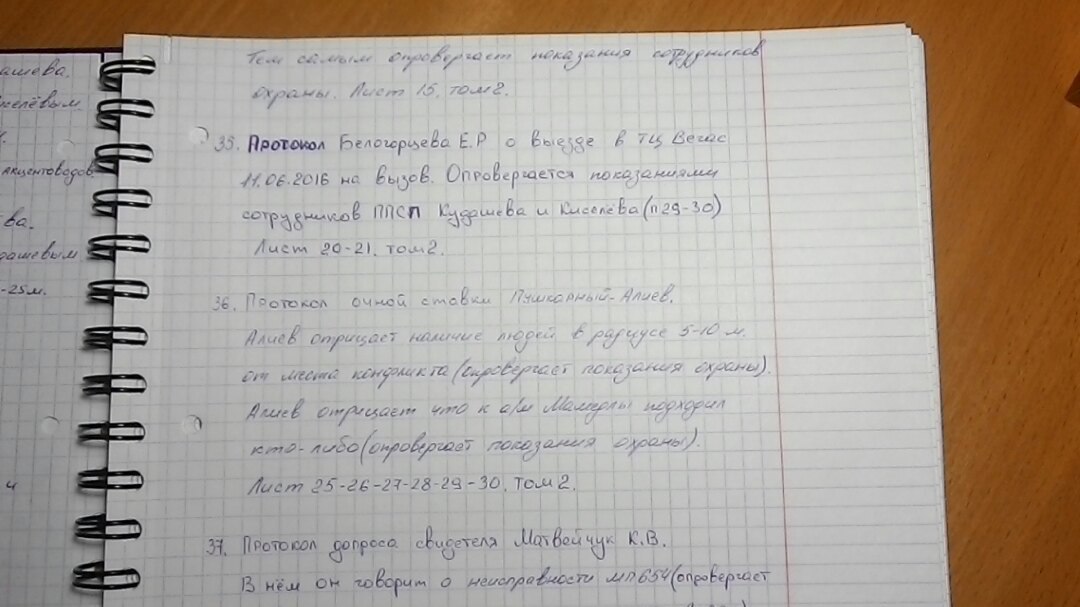 ашева.
иселёвым.
акцентоводов
ва.
дашевым
-25м.
и
Тем самым опровергает показания сотрудников
охраны. Лист 15, том 2.
35. Протокол Белогорцева Е.Р о выезде в ТЦ Вегас
11.06.2016 на вызов. Опровергается показаниями
сотрудников ППСП Кудашева и Киселёва (п29-30)
Лист 20-21, том 2.
36. Протокол очной ставки Пушкарный-Алиев.
Алиев отрицает наличие людей в радиусе 5-10 м.
от места конфликта (опровергает показания охраны).
Алиев отрицает что к а/м Мамедлы подходил
кто-либо (опровергает показания охраны).
Лист 25-26-27-28-29-30, том 2.
37. Протокол допроса свидетеля Матвейчук К.В.
В нём он говорит о неисправности мп654 (опровергает